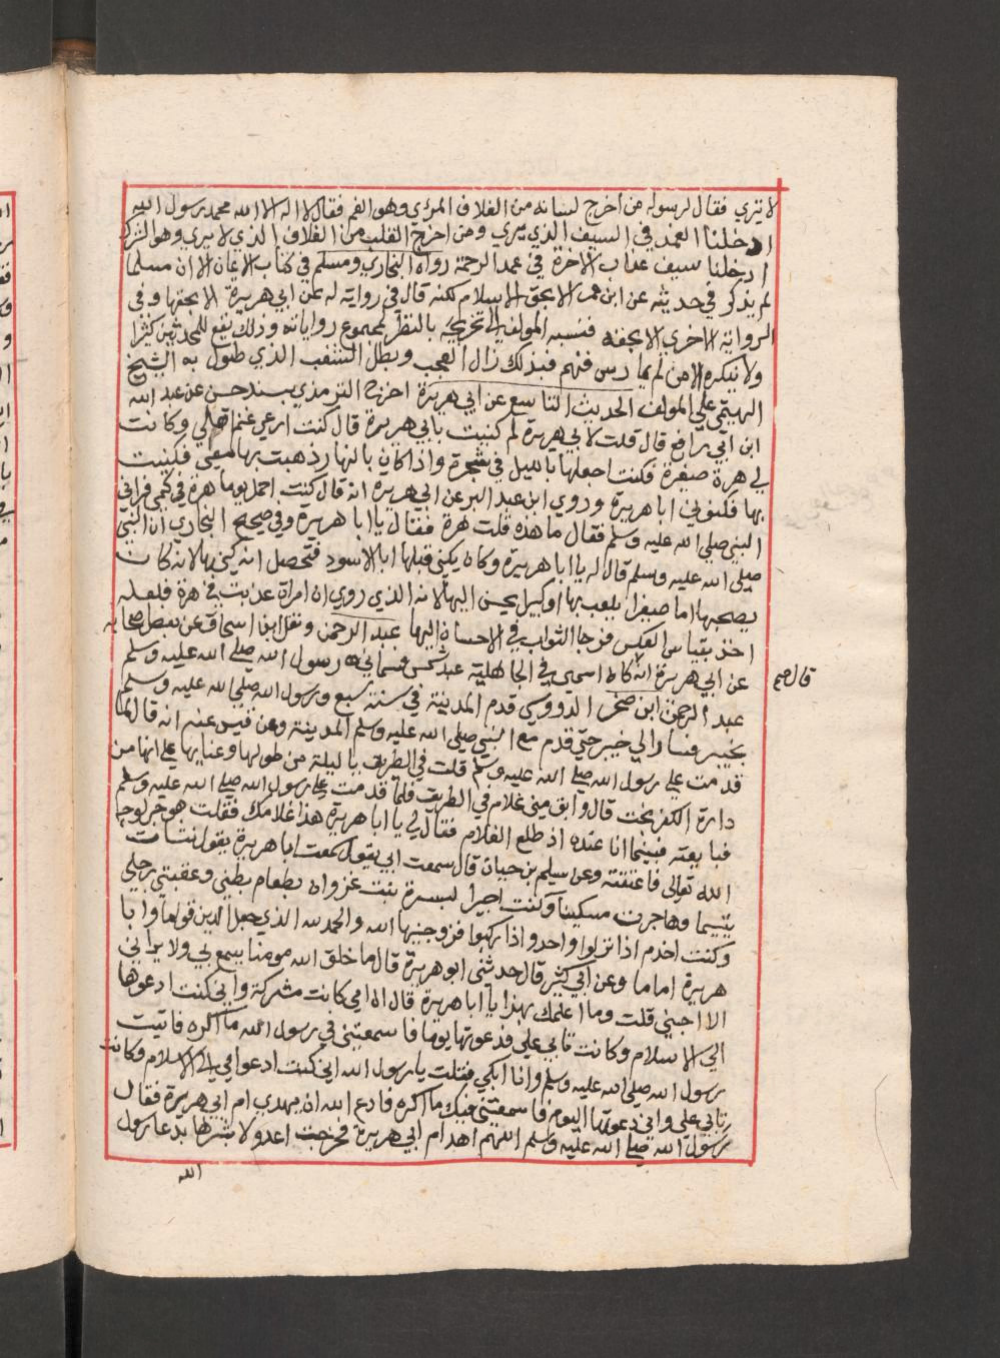 لا يتري فقال لرسوله من اخرج لسانه من الغلاف المرئي وهو الفم فقال لا اله الا الله محمد رسول الله
ادخلنا الغمد في السيف الذي يري ومن اخرج القلب من الغلاف الذي لا يري وهو الشرك
ادخلنا سيف عذاب الاخرة في غمد الرحمة رواه البخاري ومسلم في كتاب الايمان الا ان مسلما
لم يذكر في حديثه عن ابن عمر الا بحق الاسلام لكنه قال في رواية له عن ابي هريرة الا بحقها وفي
الرواية الاخري الا بحقه فنسبه المولف الي تخريجه بالنظر لمجموع رواياته وذلك يقع للمحدثين كثيرا
ولا ينكره الا من لم يمارس فنهم فبذلك زال العجب وبطل الشغب الذي طول به الشيخ
الهيتمي علي المولف الحديث التاسع عن ابي هريرة اخرج الترمذي بسند حسن عن عبد الله
ابن ابي رافع قال قلت لابي هريرة لم كنيت بابي هريرة قال كنت ارعي غنم اهلي وكانت
لي هرة صغيرة فكنت اجعلها بالليل في شجرة واذا كان بالنهار ذهبت بها معي فكنيت
بها فكنوني ابا هريرة وروي ابن عبد البر عن ابي هريرة انه قال كنت احمل يوما هرة في كمي فراني
النبي صلي الله عليه وسلم فقال ما هذه قلت هرة فقال يا ابا هريرة وفي صحيح البخاري ان النبي
صلي الله عليه وسلم قال له يا ابا هريرة وكان يكني قبلها ابا الاسود فتحصل انه كني بها لانه كان
يصحبها اما صغيرا يلعب بها او كبيرا يحسن اليها لانه الذي روي ان امراة عذبت في هرة فلعله
اخذ بقياس العكس فرجا الثواب في الاحسان اليها عبد الرحمن ونقل ابن اسحاق عن بعض صحابه
عن ابي هريرة انه كان اسمي في الجاهلية عبد شمس فسماني رسول الله صلي الله عليه وسلم
قال صح
عبد الرحمن ابن صخر الدووسي قدم المدينة في سنة سبع ورسول الله صلي الله عليه وسلم
بخيبر فسار الي خيبر حتي قدم مع النبي صلي الله عليه وسلم المدينة وعن قيس عنه انه قال لما
قدمت علي رسول الله صلي الله عليه وسلم قلت في الطريق يا ليلة من طولها وعنايها علي انها من
دارة الكفر نجت قال وابق مني غلام في الطريق فلما قدمت علي رسول الله صلي الله عليه وسلم
فبايعته فبينما انا عنده اذ طلع الغلام فقال لي يا ابا هريرة هذا غلامك فقلت هو حر لوجه
الله تعالي فاعتقته وعن سليم بن حبان قال سمعت ابي يقول سمعت ابا هريرة يقول نشات
يتيما وهاجرت مسكينا وكنت اجيرا لبسرة بنت غزوان بطعام بطني وعقبتي رجلي
وكنت اخدم اذا نزلوا واحدو اذا ركبوا فزوجنيها الله والحمد لله الذي جعل الدين قواما وابا
هريرة اماما وعن ابي كثير قال حدثني ابو هريرة قال ما خلق الله مومنا يسمع بي ولا يراني
الا احبني قلت وما اعلمك بهذا يا ابا هريرة قال ان امي كانت مشركة واني كنت ادعوها
الي الاسلام وكانت تابي علي فدعوتها يوما فاسمعتني في رسول الله ما اكره فاتيت
رسول الله صلي الله عليه وسلم وانا ابكي فقلت يا رسول الله اني كنت ادعوا امي الي الاسلام وكانت
تابي علي واني دعوتها اليوم فاسمعتني فيك ما اكره فادع الله ان يهدي ام ابي هريرة فقال
رسول الله صلي الله عليه وسلم اللهم اهد ام ابي هريرة فخرجت اعدو لابشرها بدعا رسول
الله